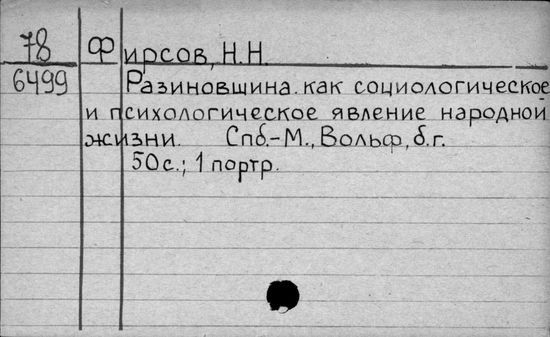 78
6499
Фирсов, Н.Н.
Разиновщина. как социологическое
и психологическое явление народной
жизни. Спб.-М., Вольф, б.г.
50с.; 1 портр.